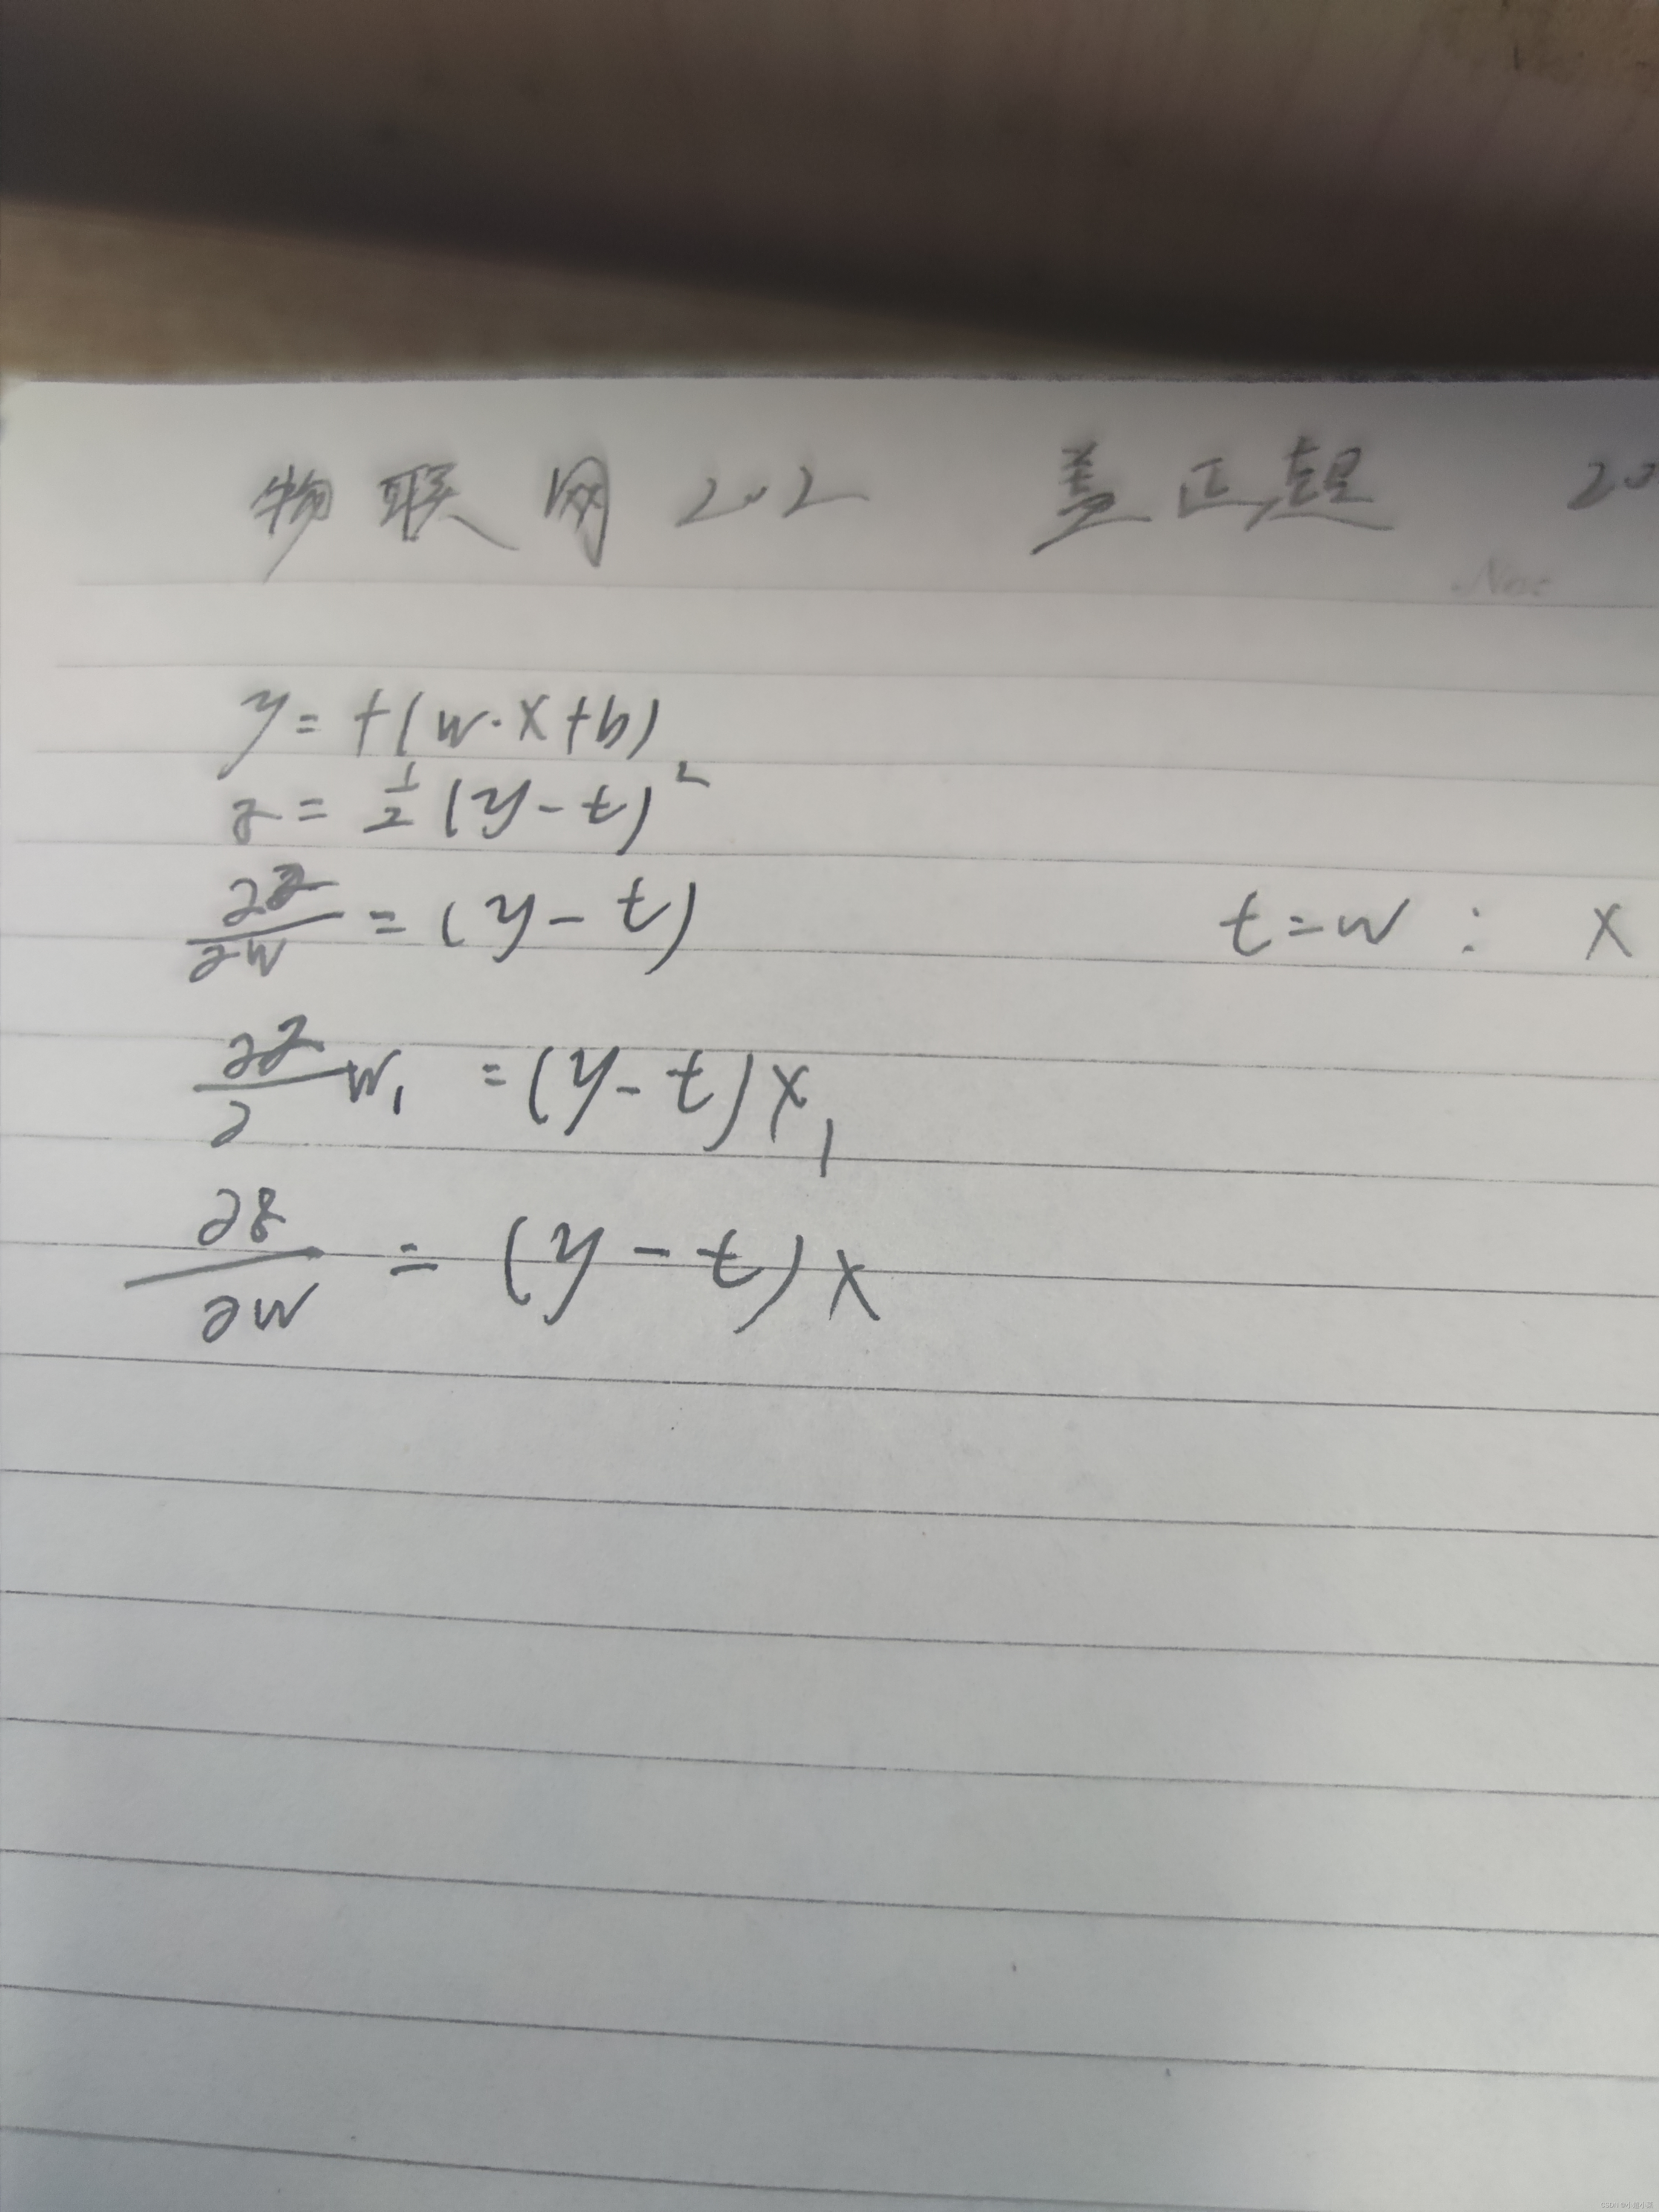 物联网202 盖正超 20
No:
y = f(w·x+b)
z = 1/2 (y-t)²
∂z/∂w = (y-t) t=w : x
∂z/∂ w₁ = (y-t)x₁
∂z/∂w = (y-t)x
CSDN @小超小菜